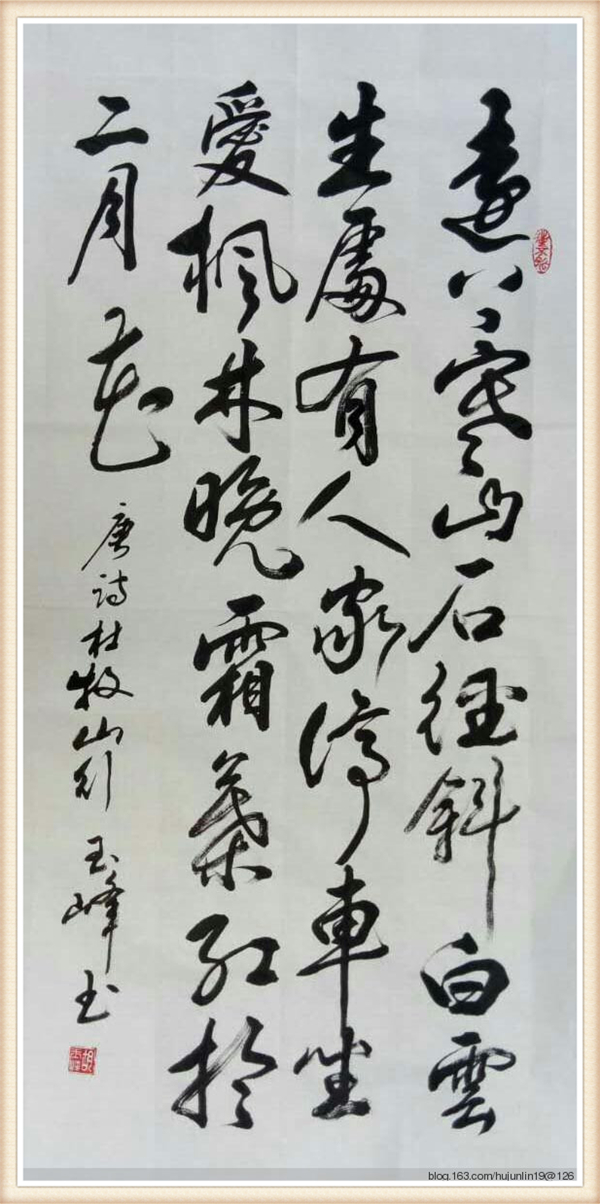 遠上寒山石徑斜白雲
生處有人家停車坐
愛楓林晚霜葉紅於
二月花
唐诗杜牧山行 玉峰书
blog.163.com/hujunlin19@126